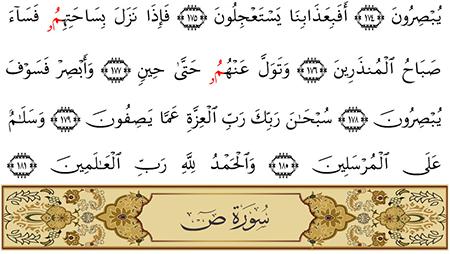 يُبۡصِرُونَ ﴿١٧٤﴾ أَفَبِعَذَابِنَا يَسۡتَعۡجِلُونَ ﴿١٧٥﴾ فَإِذَا نَزَلَ بِسَاحَتِهِمُۥ فَسَآءَ
صَبَاحُ ٱلۡمُنذَرِينَ ﴿١٧٦﴾ وَتَوَلَّ عَنۡهُمُۥ حَتَّىٰ حِينٖ ﴿١٧٧﴾ وَأَبۡصِرۡ فَسَوۡفَ
يُبۡصِرُونَ ﴿١٧٨﴾ سُبۡحَٰنَ رَبِّكَ رَبِّ ٱلۡعِزَّةِ عَمَّا يَصِفُونَ ﴿١٧٩﴾ وَسَلَٰمٌ
عَلَى ٱلۡمُرۡسَلِينَ ﴿١٨٠﴾ وَٱلۡحَمۡدُ لِلَّهِ رَبِّ ٱلۡعَٰلَمِينَ ﴿١٨١﴾
سُورَةُ صٓ